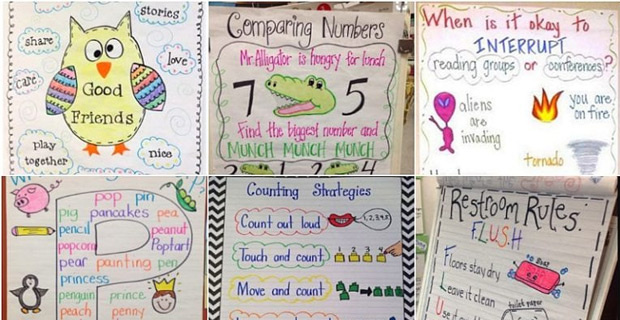 stories
share
love
care
Good
Friends
play
together
nice
Comparing Numbers
Mr. Alligator is hungry for lunch
7 5
Find the biggest number and
MUNCH MUNCH MUNCH
2 1 2 4
When is it okay to
INTERRUPT
reading groups or conferences?
aliens
are
invading
you are
on fire
tornado
pop pin
pig pancakes pea
pencil peanut
popcorn Poptart
pear painting pen
princess
penguin prince
peach penny
P
Counting Strategies
Count out loud
1,2,3,4,5
Touch and count
1 2 3 4
Move and count
Restroom Rules.
F.L.U.S.H
Floors stay dry
soap
Leave it clean
toilet paper